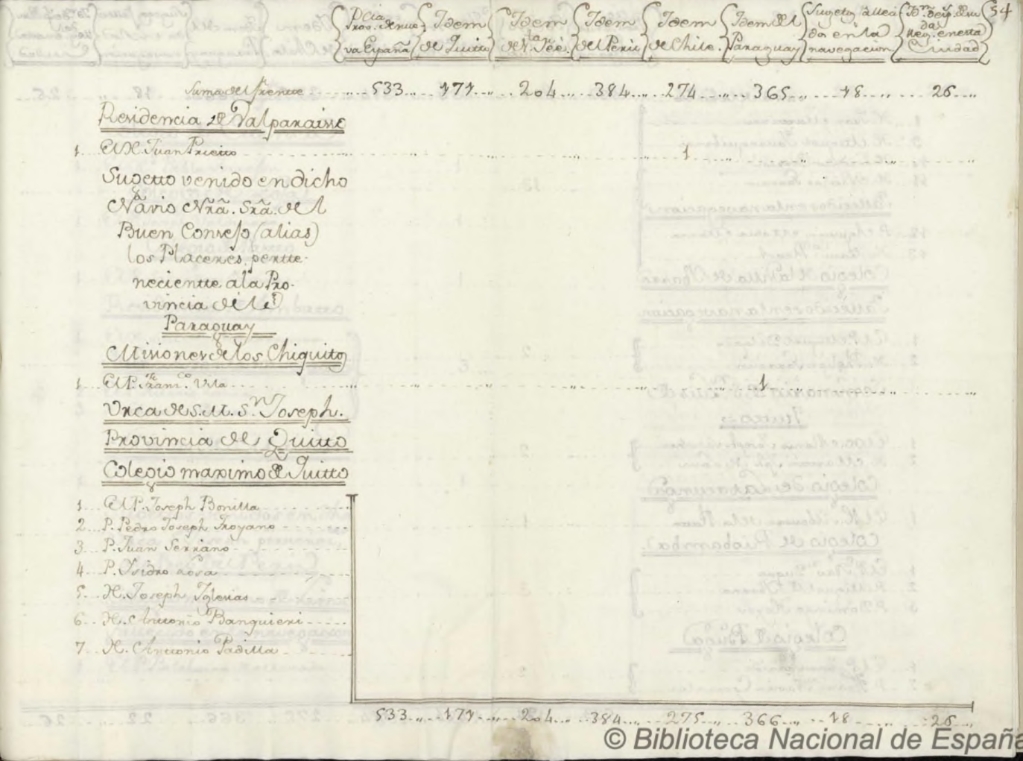 Pcia. Prov. de nue
va España
Idem
de Quitto
Idem
de S. Fée
Idem
del Perú
Idem
de Chile.
Idem del
Paraguay
navegacion
Ciudad
34
Suma del frente 533 171 204 384 274 365 18 26
Residencia de Valparaiso
1 El H. Juan Prieto 1
Sugetto venido en dicho
Navio Nrã. Srã. del
Buen Consejo (alias)
los Placeres, pertte-
neciente a la Pro-
vincia del
Paraguay
Misiones de los Chiquitos
1 El P. Franco. Vila 1
Urca de S.M. Sn. Joseph.
Provincia de Quitto
Colegio maximo de Quitto
1 El P. Joseph Bonilla
2 P. Pedro Joseph Troyano
3 P. Juan Serrano
4 P. Isidro Losa
5 H. Joseph Iglesias
6 H. Antonio Banquieri
7 H. Antonio Padilla
533 171 204 384 275 366 18 26
© Biblioteca Nacional de España